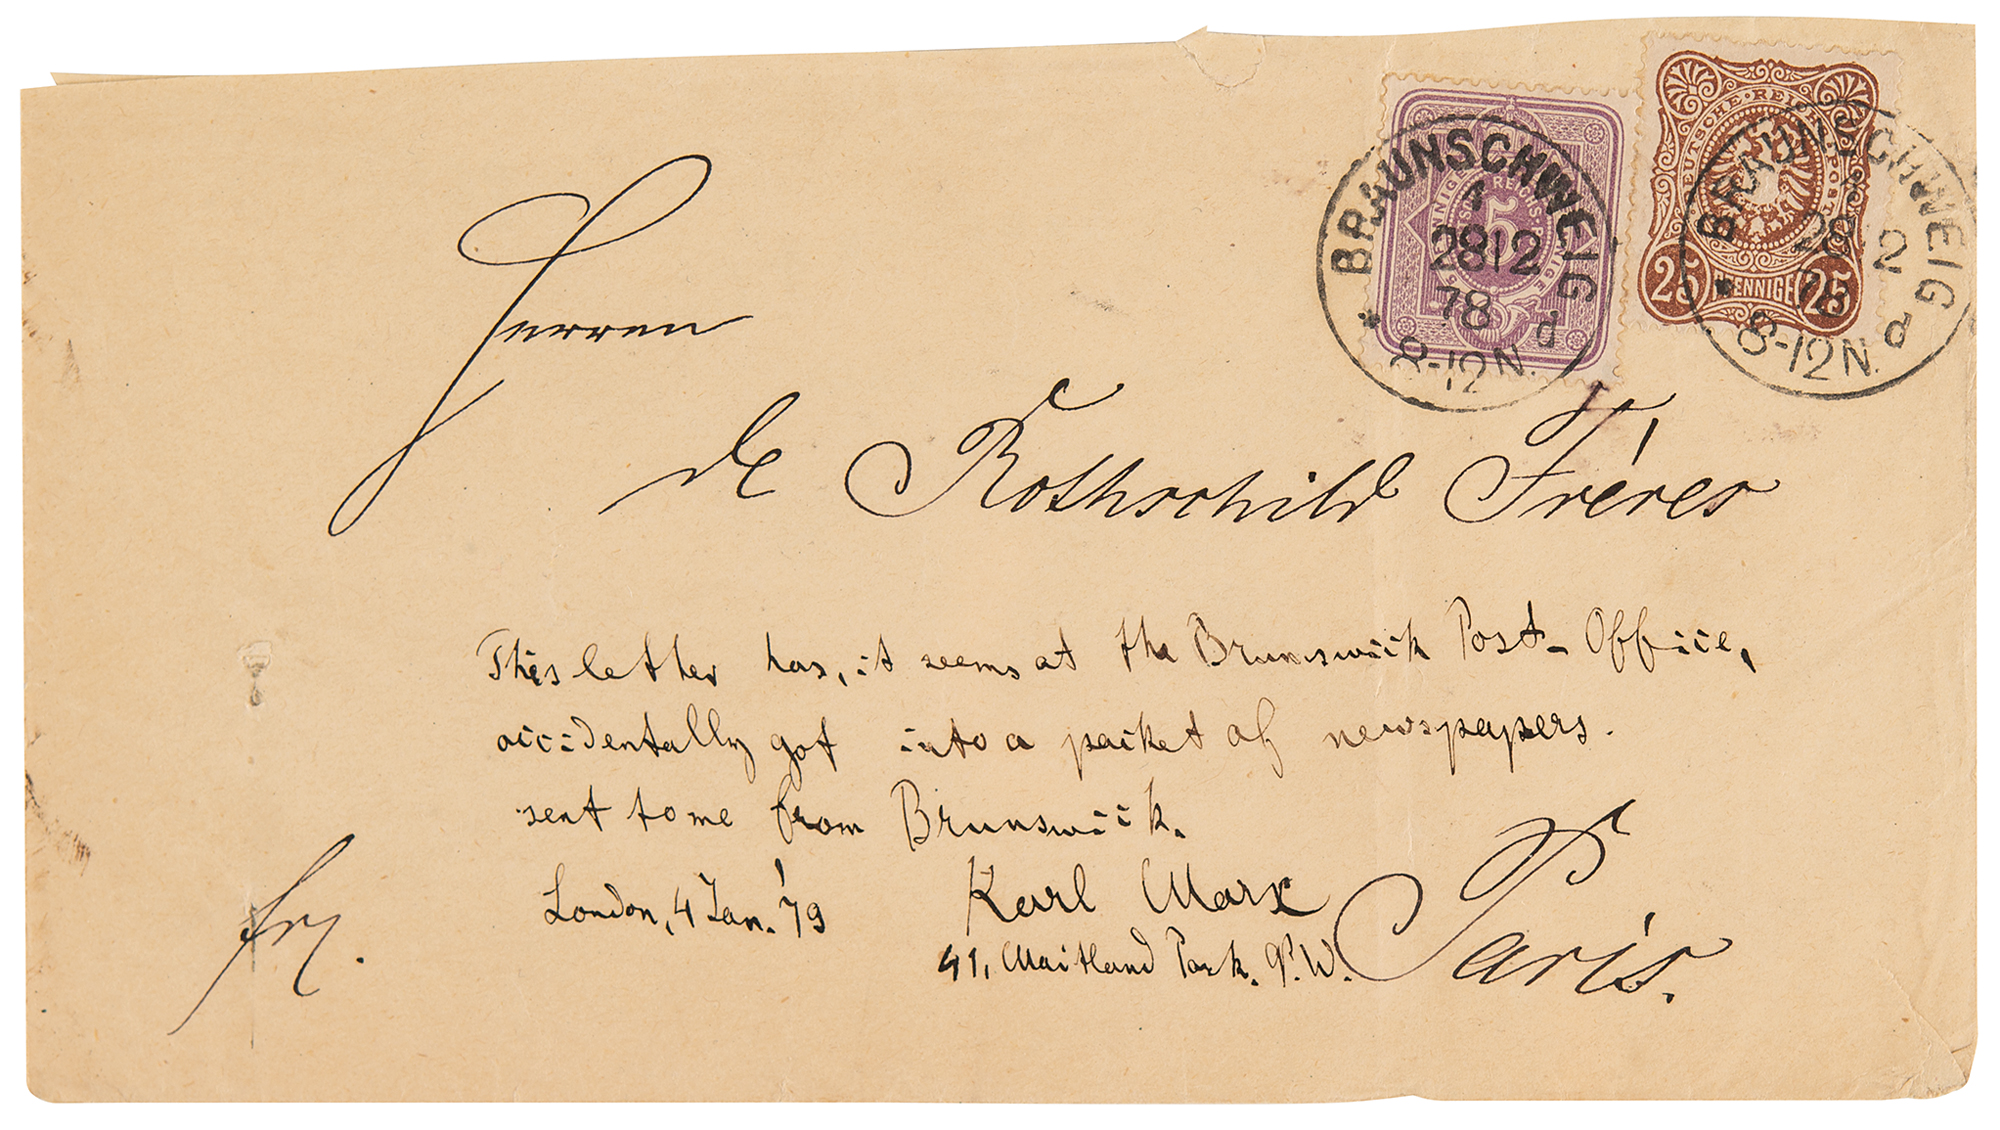 BRAUNSCHWEIG
28 12
78
8-12 N.
d
5
DEUTSCHE REICHS-POST
25 PFENNIGE 25
BRAUNSCHWEIG
28 12
78
8-12 N.
d
Herren
de Rothschild Frères
This letter has, it seems at the Brunswick Post-Office,
accidentally got into a packet of newspapers.
sent to me from Brunswick.
London, 4 Jan. '79 Karl Marx
41, Maitland Park. N.W.
Paris.